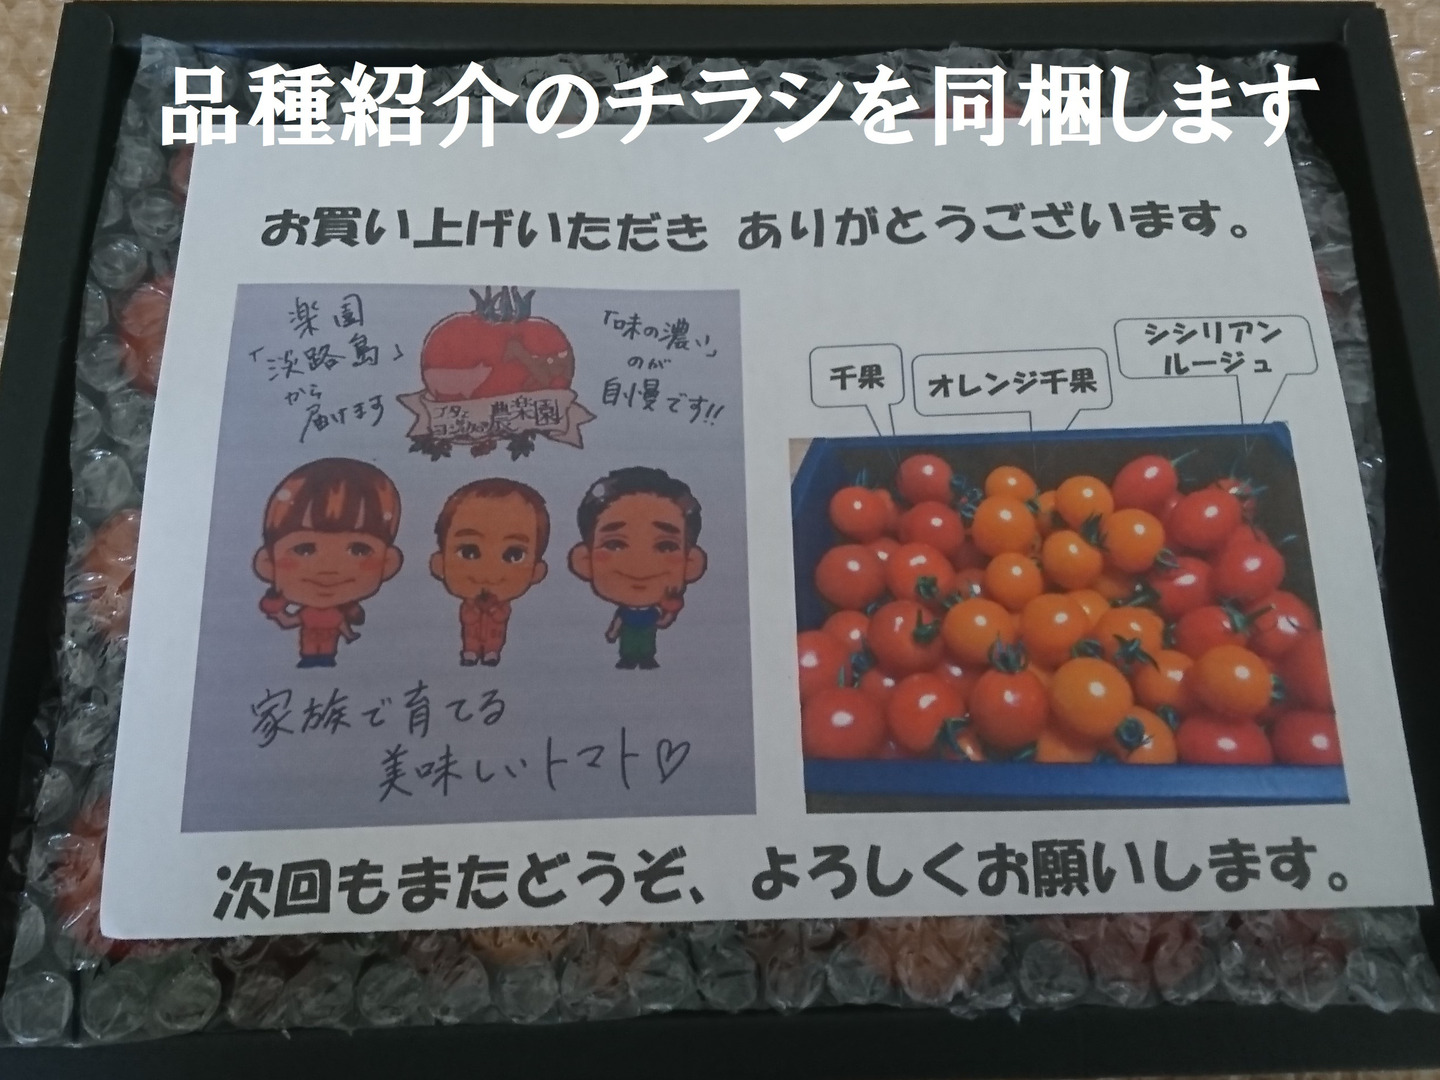 品種紹介のチラシを同梱します
お買い上げいただき ありがとうございます。
楽園
「淡路島」
から
届けます
「味の濃い」
のが
自慢です!!
農楽園
千果
オレンジ千果
シシリアン
ルージュ
家族で育てる
美味しいトマト♡
次回もまたどうぞ、よろしくお願いします。